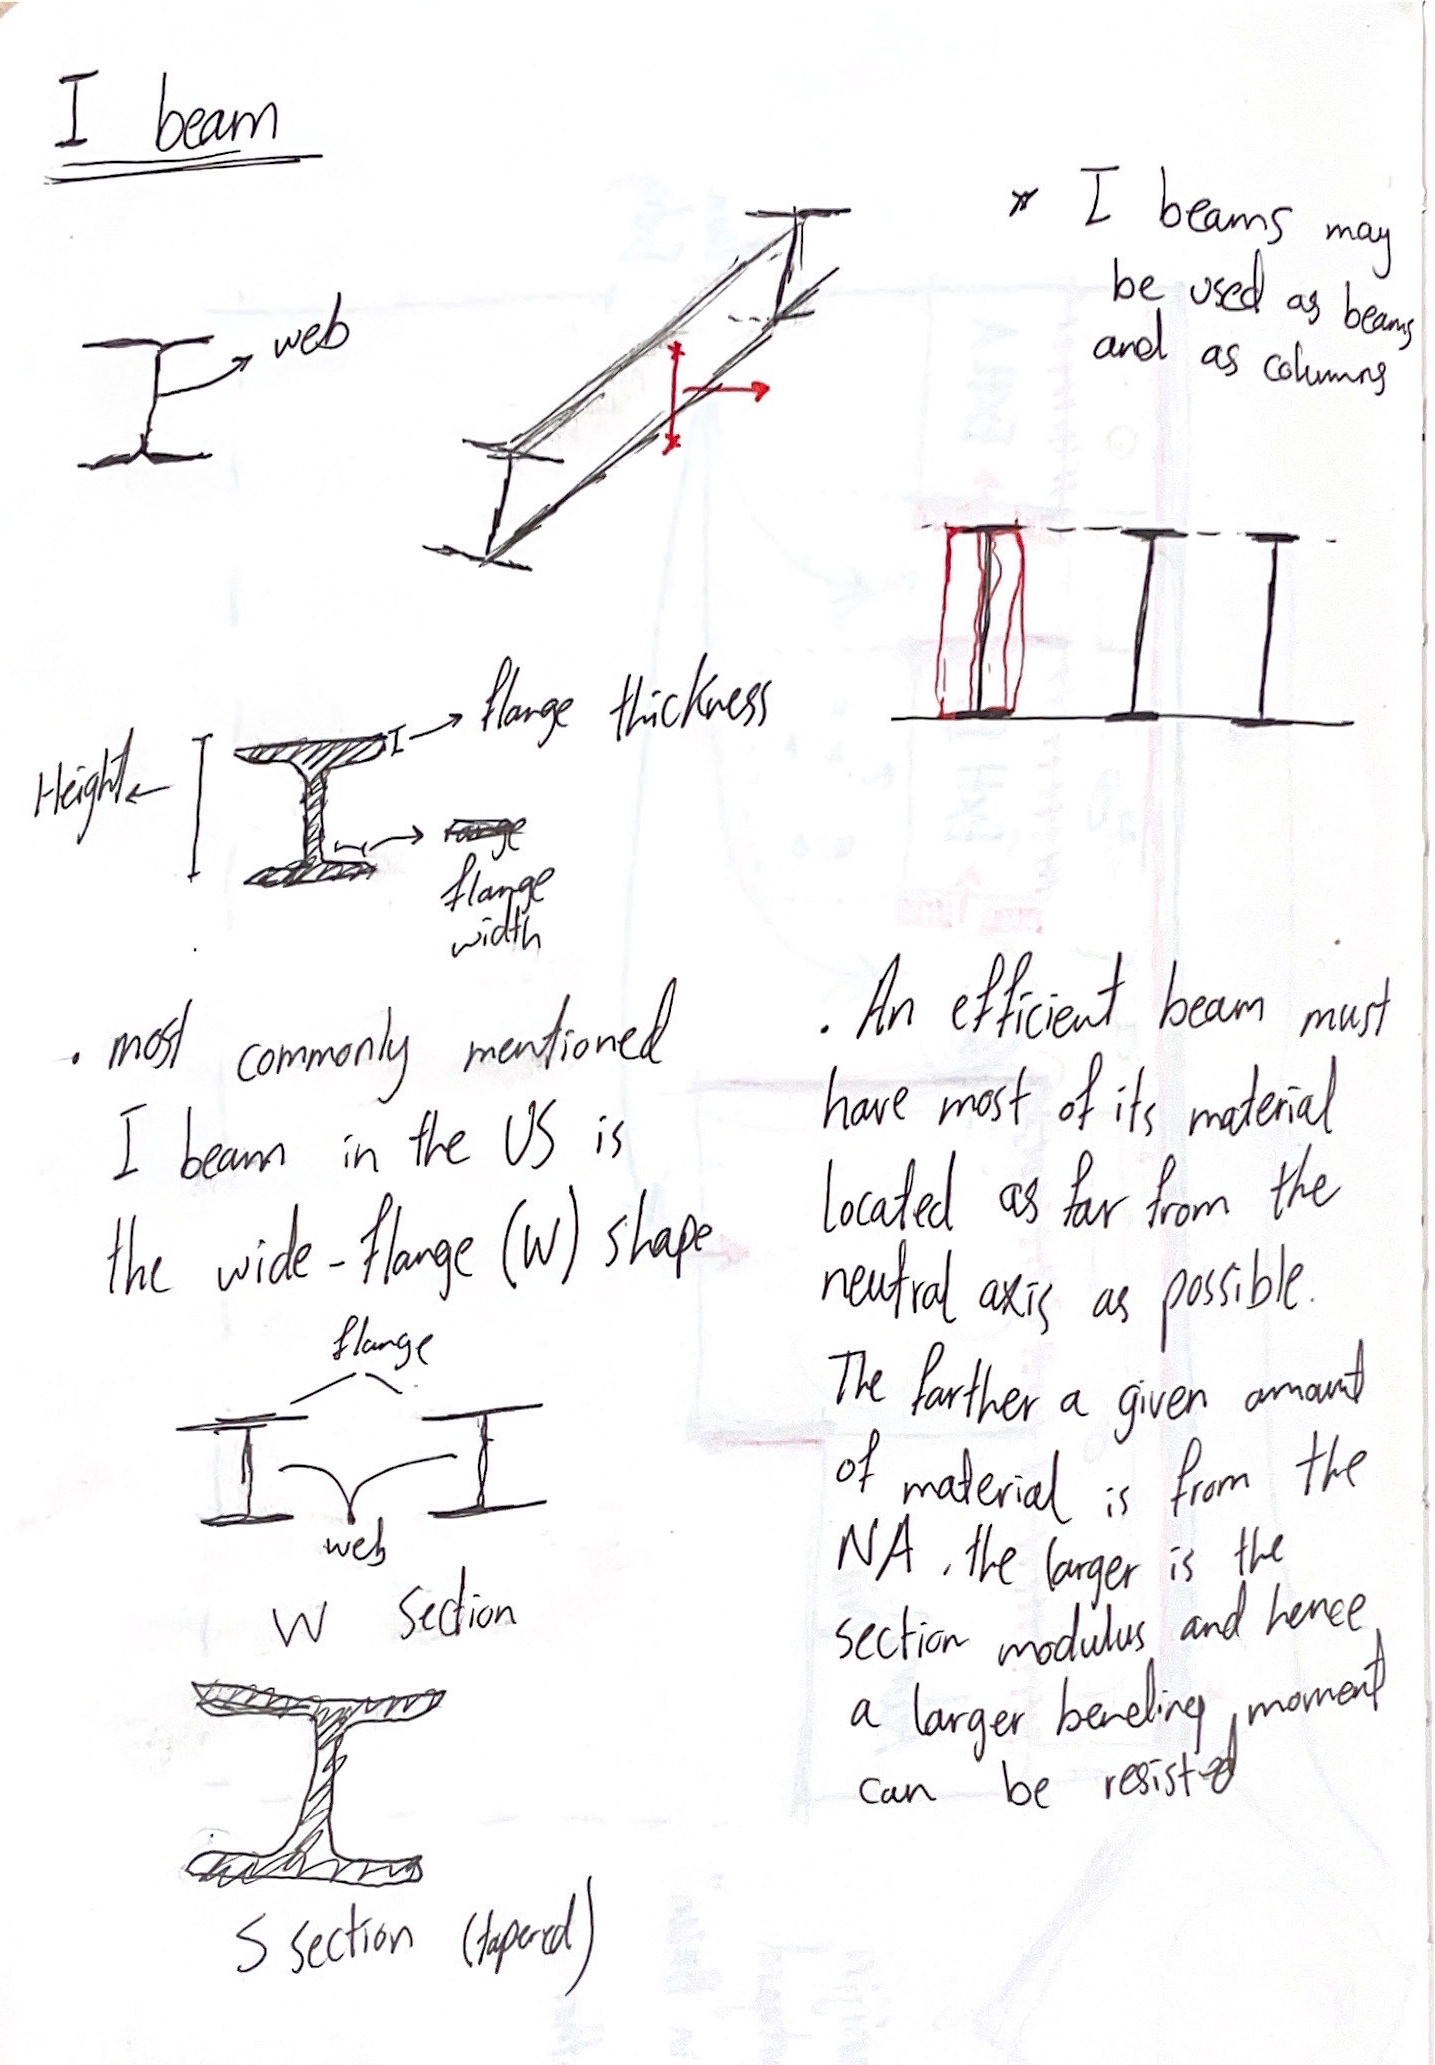 I beam
* I beams may
be used as beams
and as columns
web
flange thickness
Height
flange
width
. most commonly mentioned
I beam in the US is
the wide-flange (W) shape
flange
web
W section
S section (tapered)
. An efficient beam must
have most of its material
located as far from the
neutral axis as possible.
The farther a given amount
of material is from the
NA, the larger is the
section modulus and hence
a larger bending moment
can be resisted